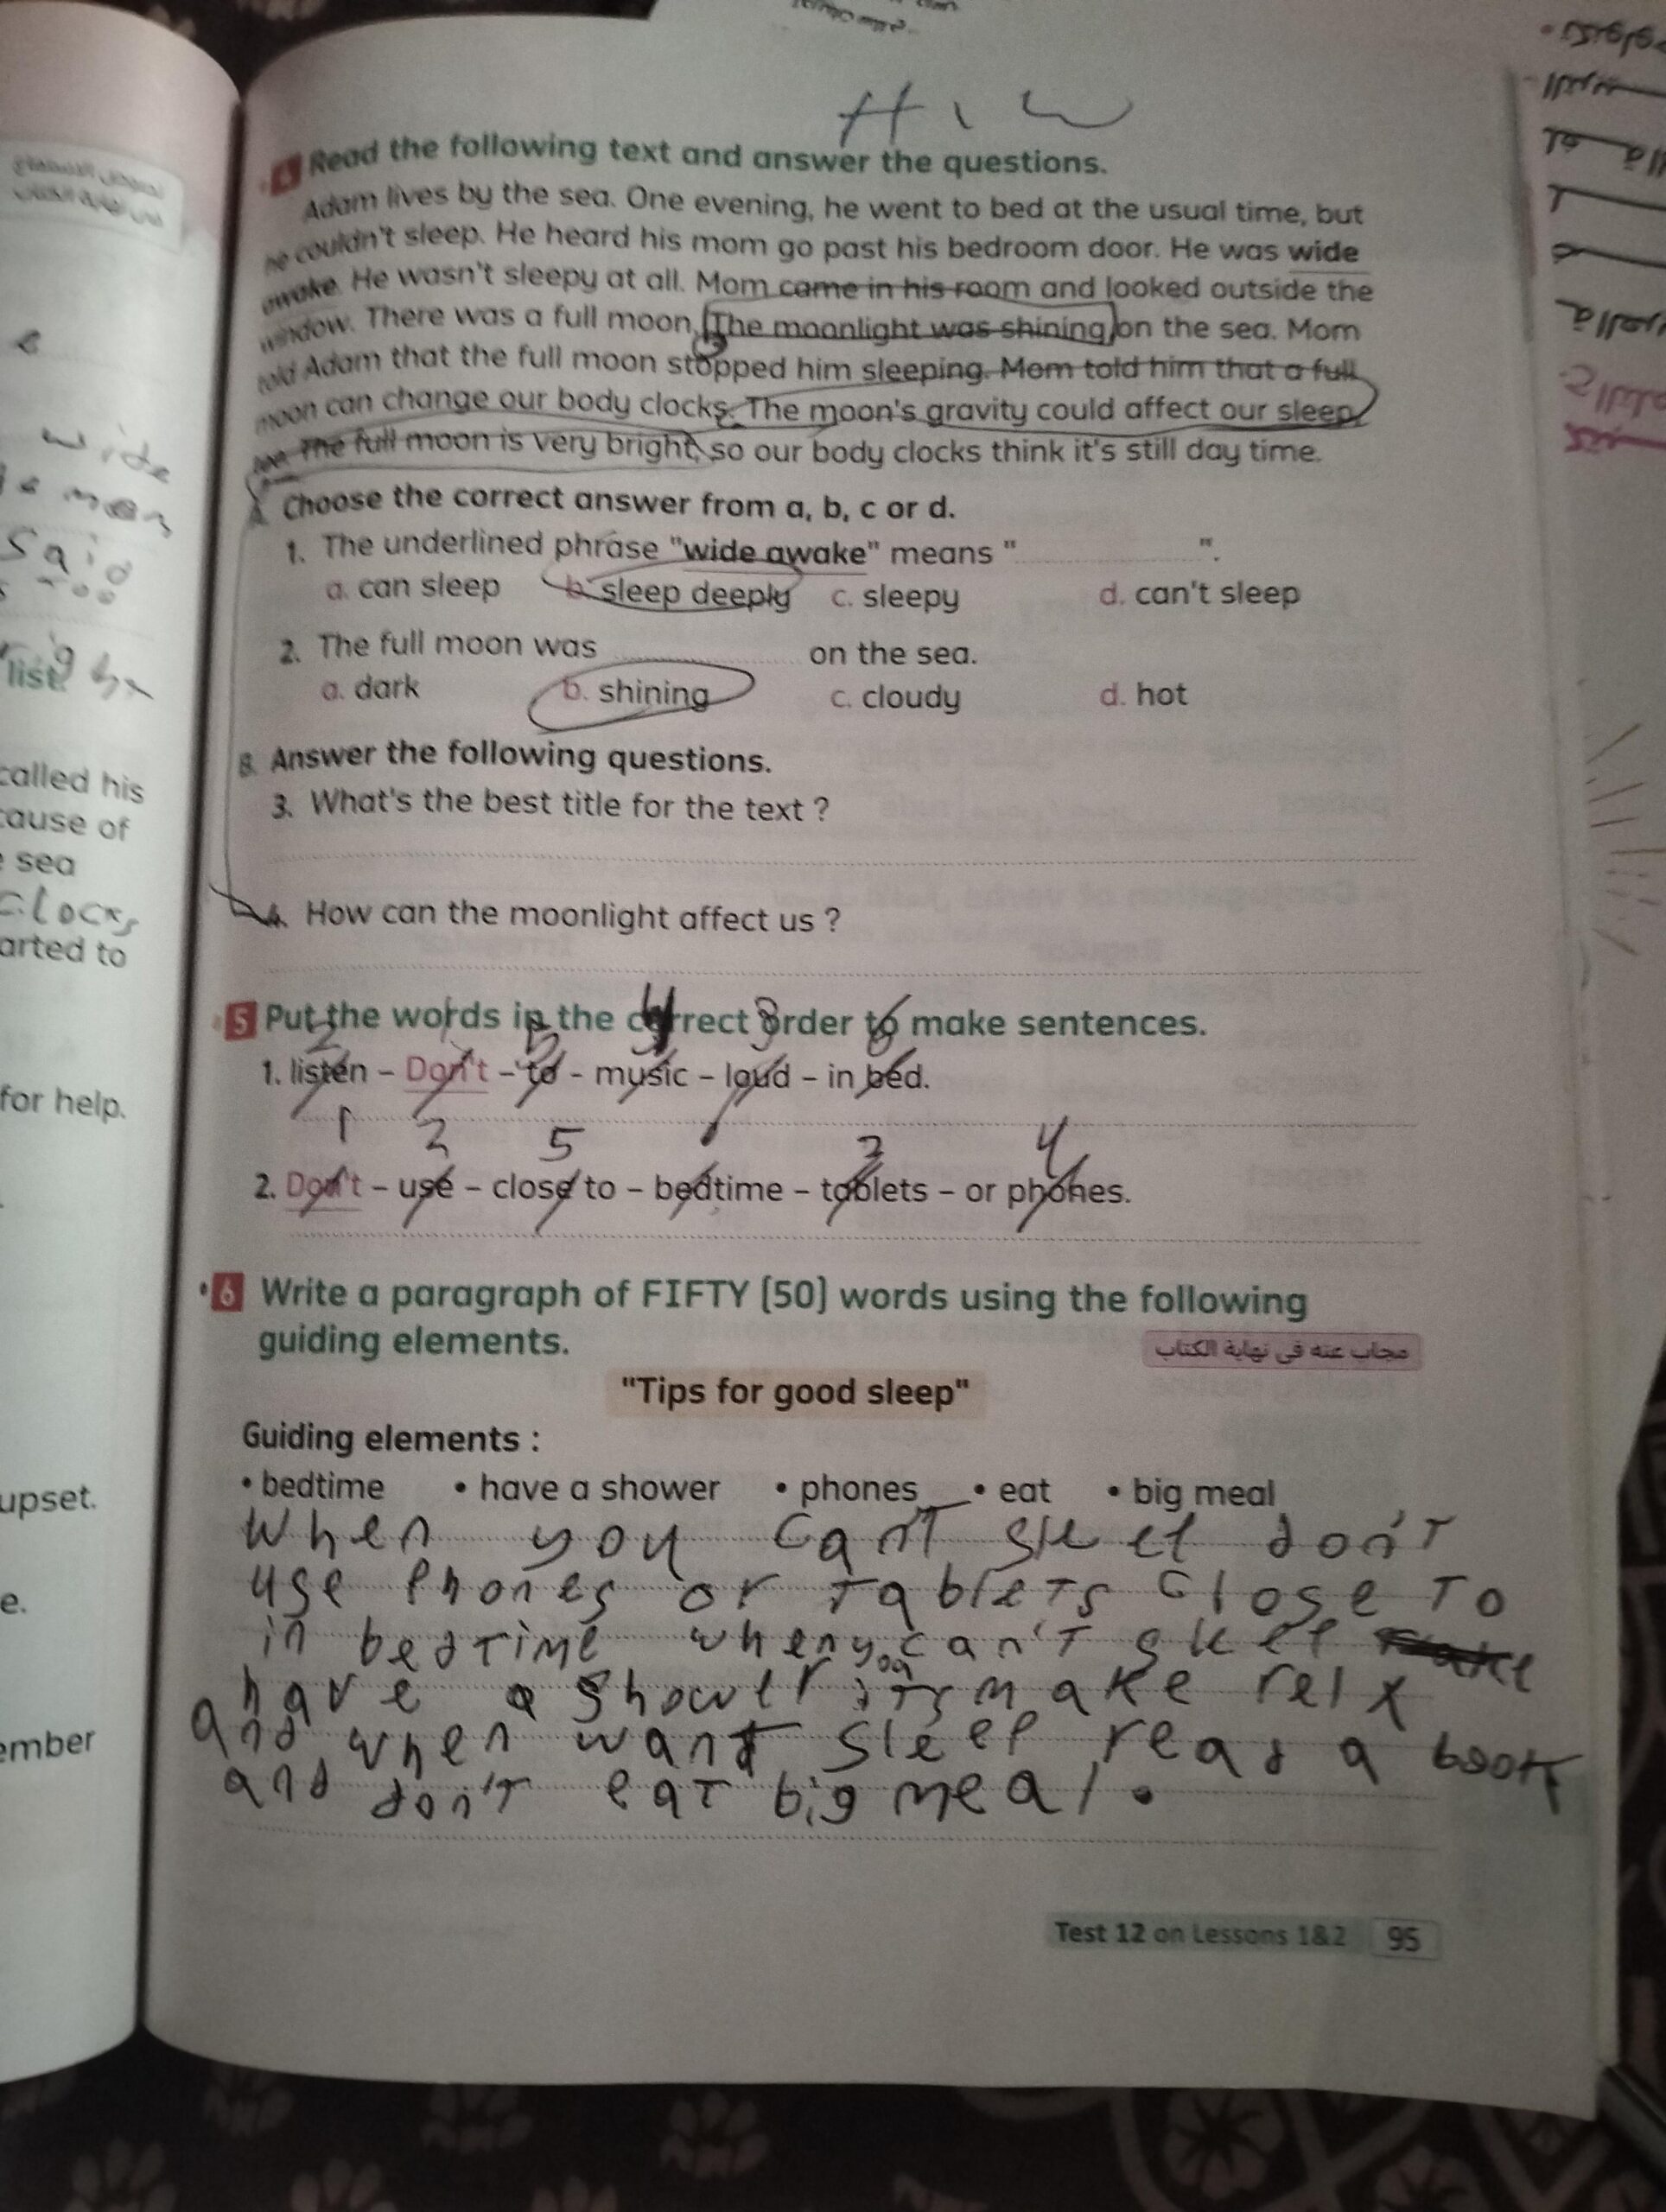 H.W
4 Read the following text and answer the questions.
Adam lives by the sea. One evening, he went to bed at the usual time, but
he couldn't sleep. He heard his mom go past his bedroom door. He was wide
awake. He wasn't sleepy at all. Mom came in his room and looked outside the
window. There was a full moon. The moonlight was shining on the sea. Mom
told Adam that the full moon stopped him sleeping. Mom told him that a full
moon can change our body clocks. The moon's gravity could affect our sleep,
too. The full moon is very bright, so our body clocks think it's still day time.
A. Choose the correct answer from a, b, c or d.
1. The underlined phrase "wide awake" means " ".
a. can sleep b. sleep deeply c. sleepy d. can't sleep
2. The full moon was on the sea.
a. dark b. shining c. cloudy d. hot
B. Answer the following questions.
3. What's the best title for the text ?
4. How can the moonlight affect us ?
5 Put the words in the correct order to make sentences.
2 1 5 4 3 6
1. listen – Don't – to – music – loud – in bed.
1 2 5 3 4
2. Don't – use – close to – bedtime – tablets – or phones.
6 Write a paragraph of FIFTY (50) words using the following
guiding elements.
مجاب عنه فى نهاية الكتاب
"Tips for good sleep"
Guiding elements :
• bedtime • have a shower • phones • eat • big meal
When you can't sleep don't
use phones or tablets close to
in bedtime when you can't sleep
have a shower its make relx
and when want sleep read a book
and don't eat big meal.
Test 12 on Lessons 1&2 95
e
wide
said
list.
called his
cause of
sea
clocks
arted to
for help.
upset.
e.
ember